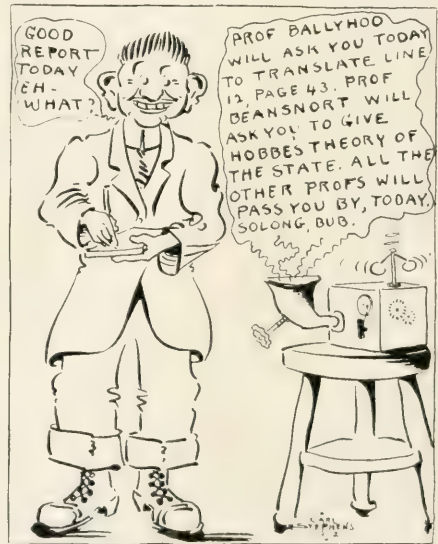 GOOD
REPORT
TODAY
EH-
WHAT?
PROF BALLYHOO
WILL ASK YOU TODAY
TO TRANSLATE LINE
12, PAGE 43. PROF
BEANSNORT WILL
ASK YOU TO GIVE
HOBBES THEORY OF
THE STATE. ALL THE
OTHER PROFS WILL
PASS YOU BY, TODAY.
SOLONG, BUB.
CARL
STEPHENS